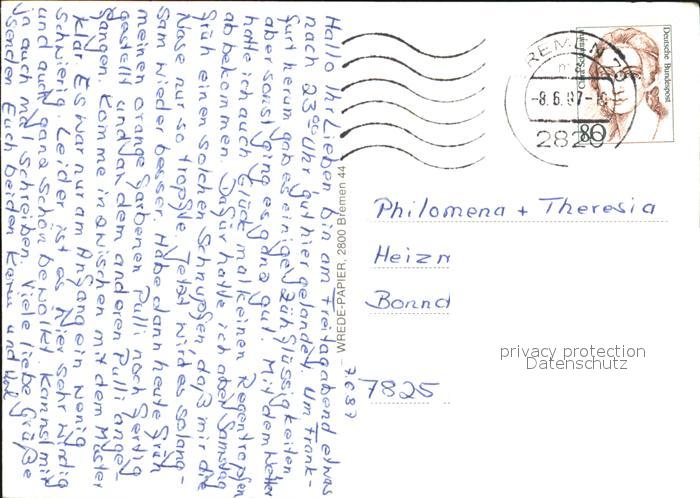 Hallo Ihr Lieben bin am Freitagabend etwas
nach 23⁰⁰ Uhr gut hier gelandet. Um Frank-
furt herum gab es einige Zähflüssigkeiten
aber sonst ging es ganz gut. Mit dem Wetter
hatte ich auch Glück mal keinen Regentropfen
abbekommen. Dafür hatte ich aber Samstag
früh einen solchen Schnupfen daß mir die
Nase nur so tropfte. Jetzt wird es so lang-
sam wieder besser. Habe dann heute früh
meinen orange farbenen Pulli noch fertig
gestellt und an dem anderen Pulli ange-
fangen. Komme inzwischen mit dem Muster
klar. Es war nur am Anfang ein wenig
schwierig. Leider ist es hier sehr windig
und auch ganz schön bewölkt. Kannst mir
ja auch mal schreiben. Viele liebe Grüße
senden Euch beiden und
7687
WREDE-PAPIER, 2800 Bremen 44
Deutsche Bundespost
Clara Schumann
80
BREMEN 15
-8.6.87-
2820
Philomena + Theresia
Heizm
Bonnd
7825
privacy protection
Datenschutz